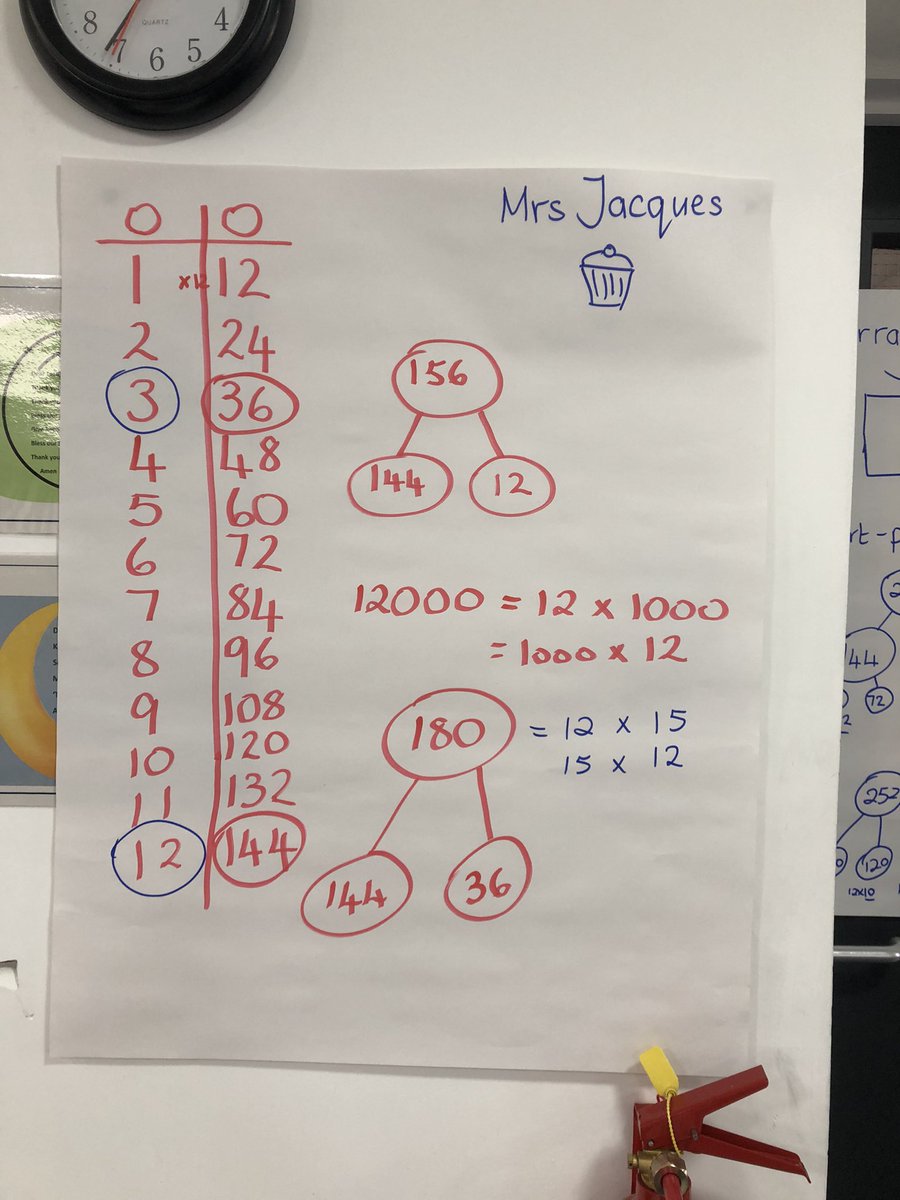 8
7
6
5
4
QUARTZ
Mrs Jacques
0 0
1 x12 12
2 24
3 36
4 48
5 60
6 72
7 84
8 96
9 108
10 120
11 132
12 144
156
144 12
12000 = 12 x 1000
= 1000 x 12
180 = 12 x 15
15 x 12
144 36
Bless our
Thank you
Amen
rra
rt-p
44
72
252
120
12x10